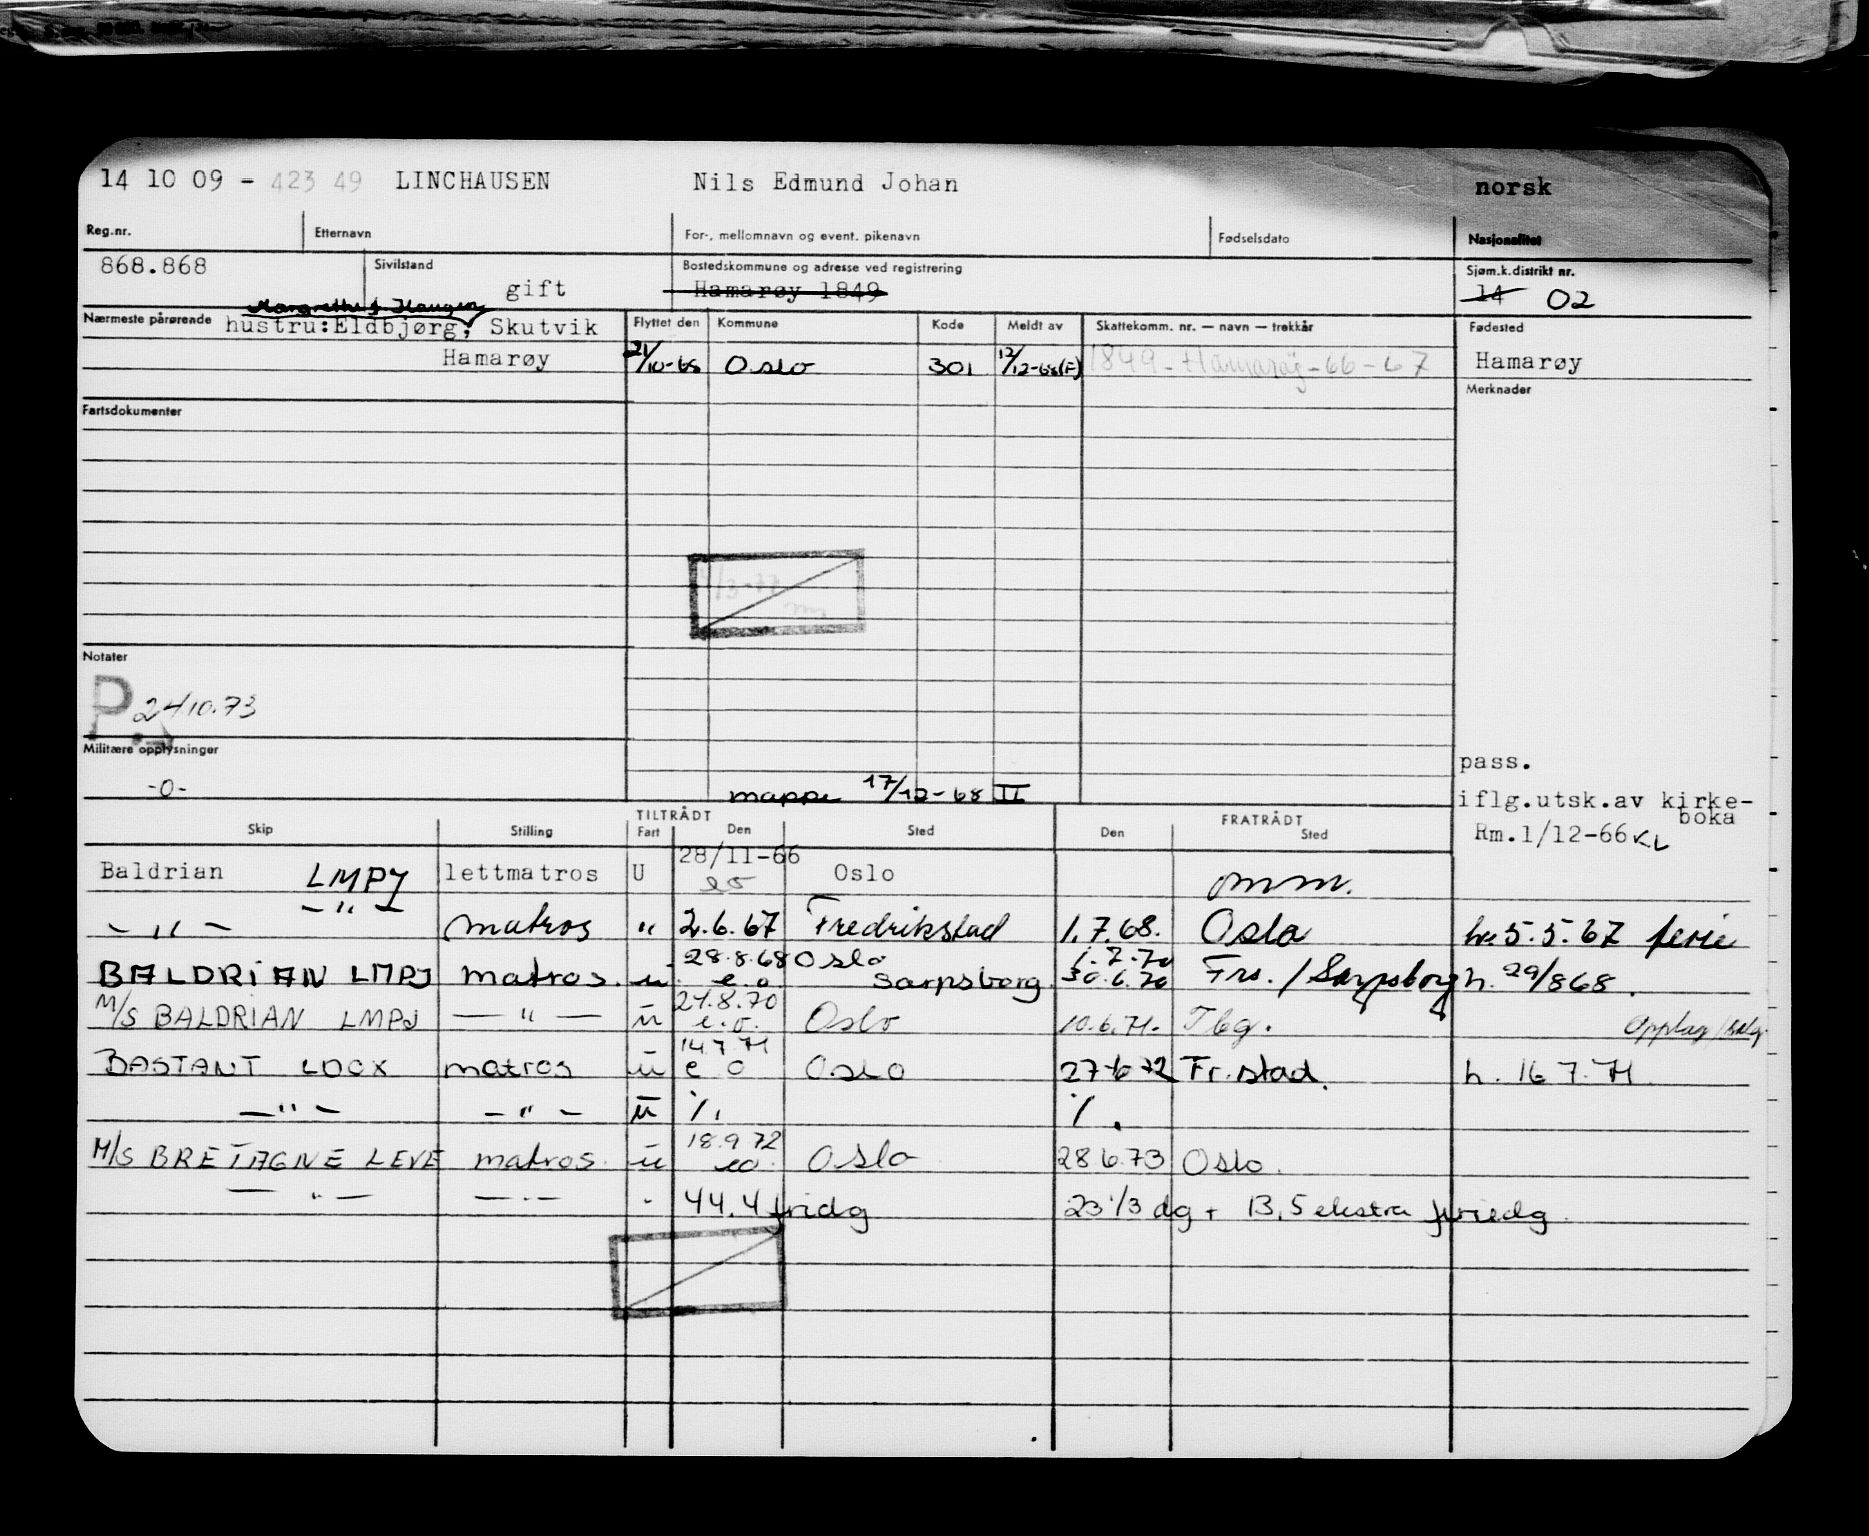 14 10 09 - 423 49 LINCHAUSEN Nils Edmund Johan norsk
Reg.nr. Etternavn For-, mellomnavn og event. pikenavn Fødselsdato Nasjonalitet
868.868 Sivilstand gift Bostedskommune og adresse ved registrering Sjøm.k.distrikt nr.
Hamarøy 1849 14 02
Nærmeste pårørende hustru:Eldbjørg, Skutvik Flyttet den Kommune Kode Meldt av Skattekomm. nr. — navn — trekkår Fødested
Hamarøy 21/10-68 Oslo 301 12/12-68(F) 1849 - Hamarøy - 66 - 67 Hamarøy
Fartsdokumenter Merknader
Notater
P 24/10.73
Militære opplysninger pass.
-0- mappe 17/12-68 II iflg.utsk.av kirke-
boka
TILTRÅDT FRATRÅDT
Skip Stilling Fart Den Sted Den Sted Rm.1/12-66 KL
Baldrian LMPJ lettmatros U 28/11-66 eo Oslo omm.
- " - - " - matros " 2.6.67 Fredrikstad 1.7.68. Oslo h. 5.5.67 ferie
BALDRIAN LMPJ matros. u 28.8.68 e.o Oslo Sarpsborg. 1.7.70 30.6.70 Frs. / Sarpsborg h. 29/868.
M/S BALDRIAN LMPJ — " — u 21.8.70 e.o. Oslo 10.6.71. Tbg. Opplag
BASTANT LDCX matros u 14.7.71 e o Oslo 27-6-72 Fr.stad. h. 16 7.71
- " - - " - u %. %.
M/S BRETAGNE LEVE matros. u 18.9.72 eo. Oslo 28 6.73 Oslo.
— " — — " — " 44.4 fridg 23 1/3 dg + 13,5 ekstra feriedg.